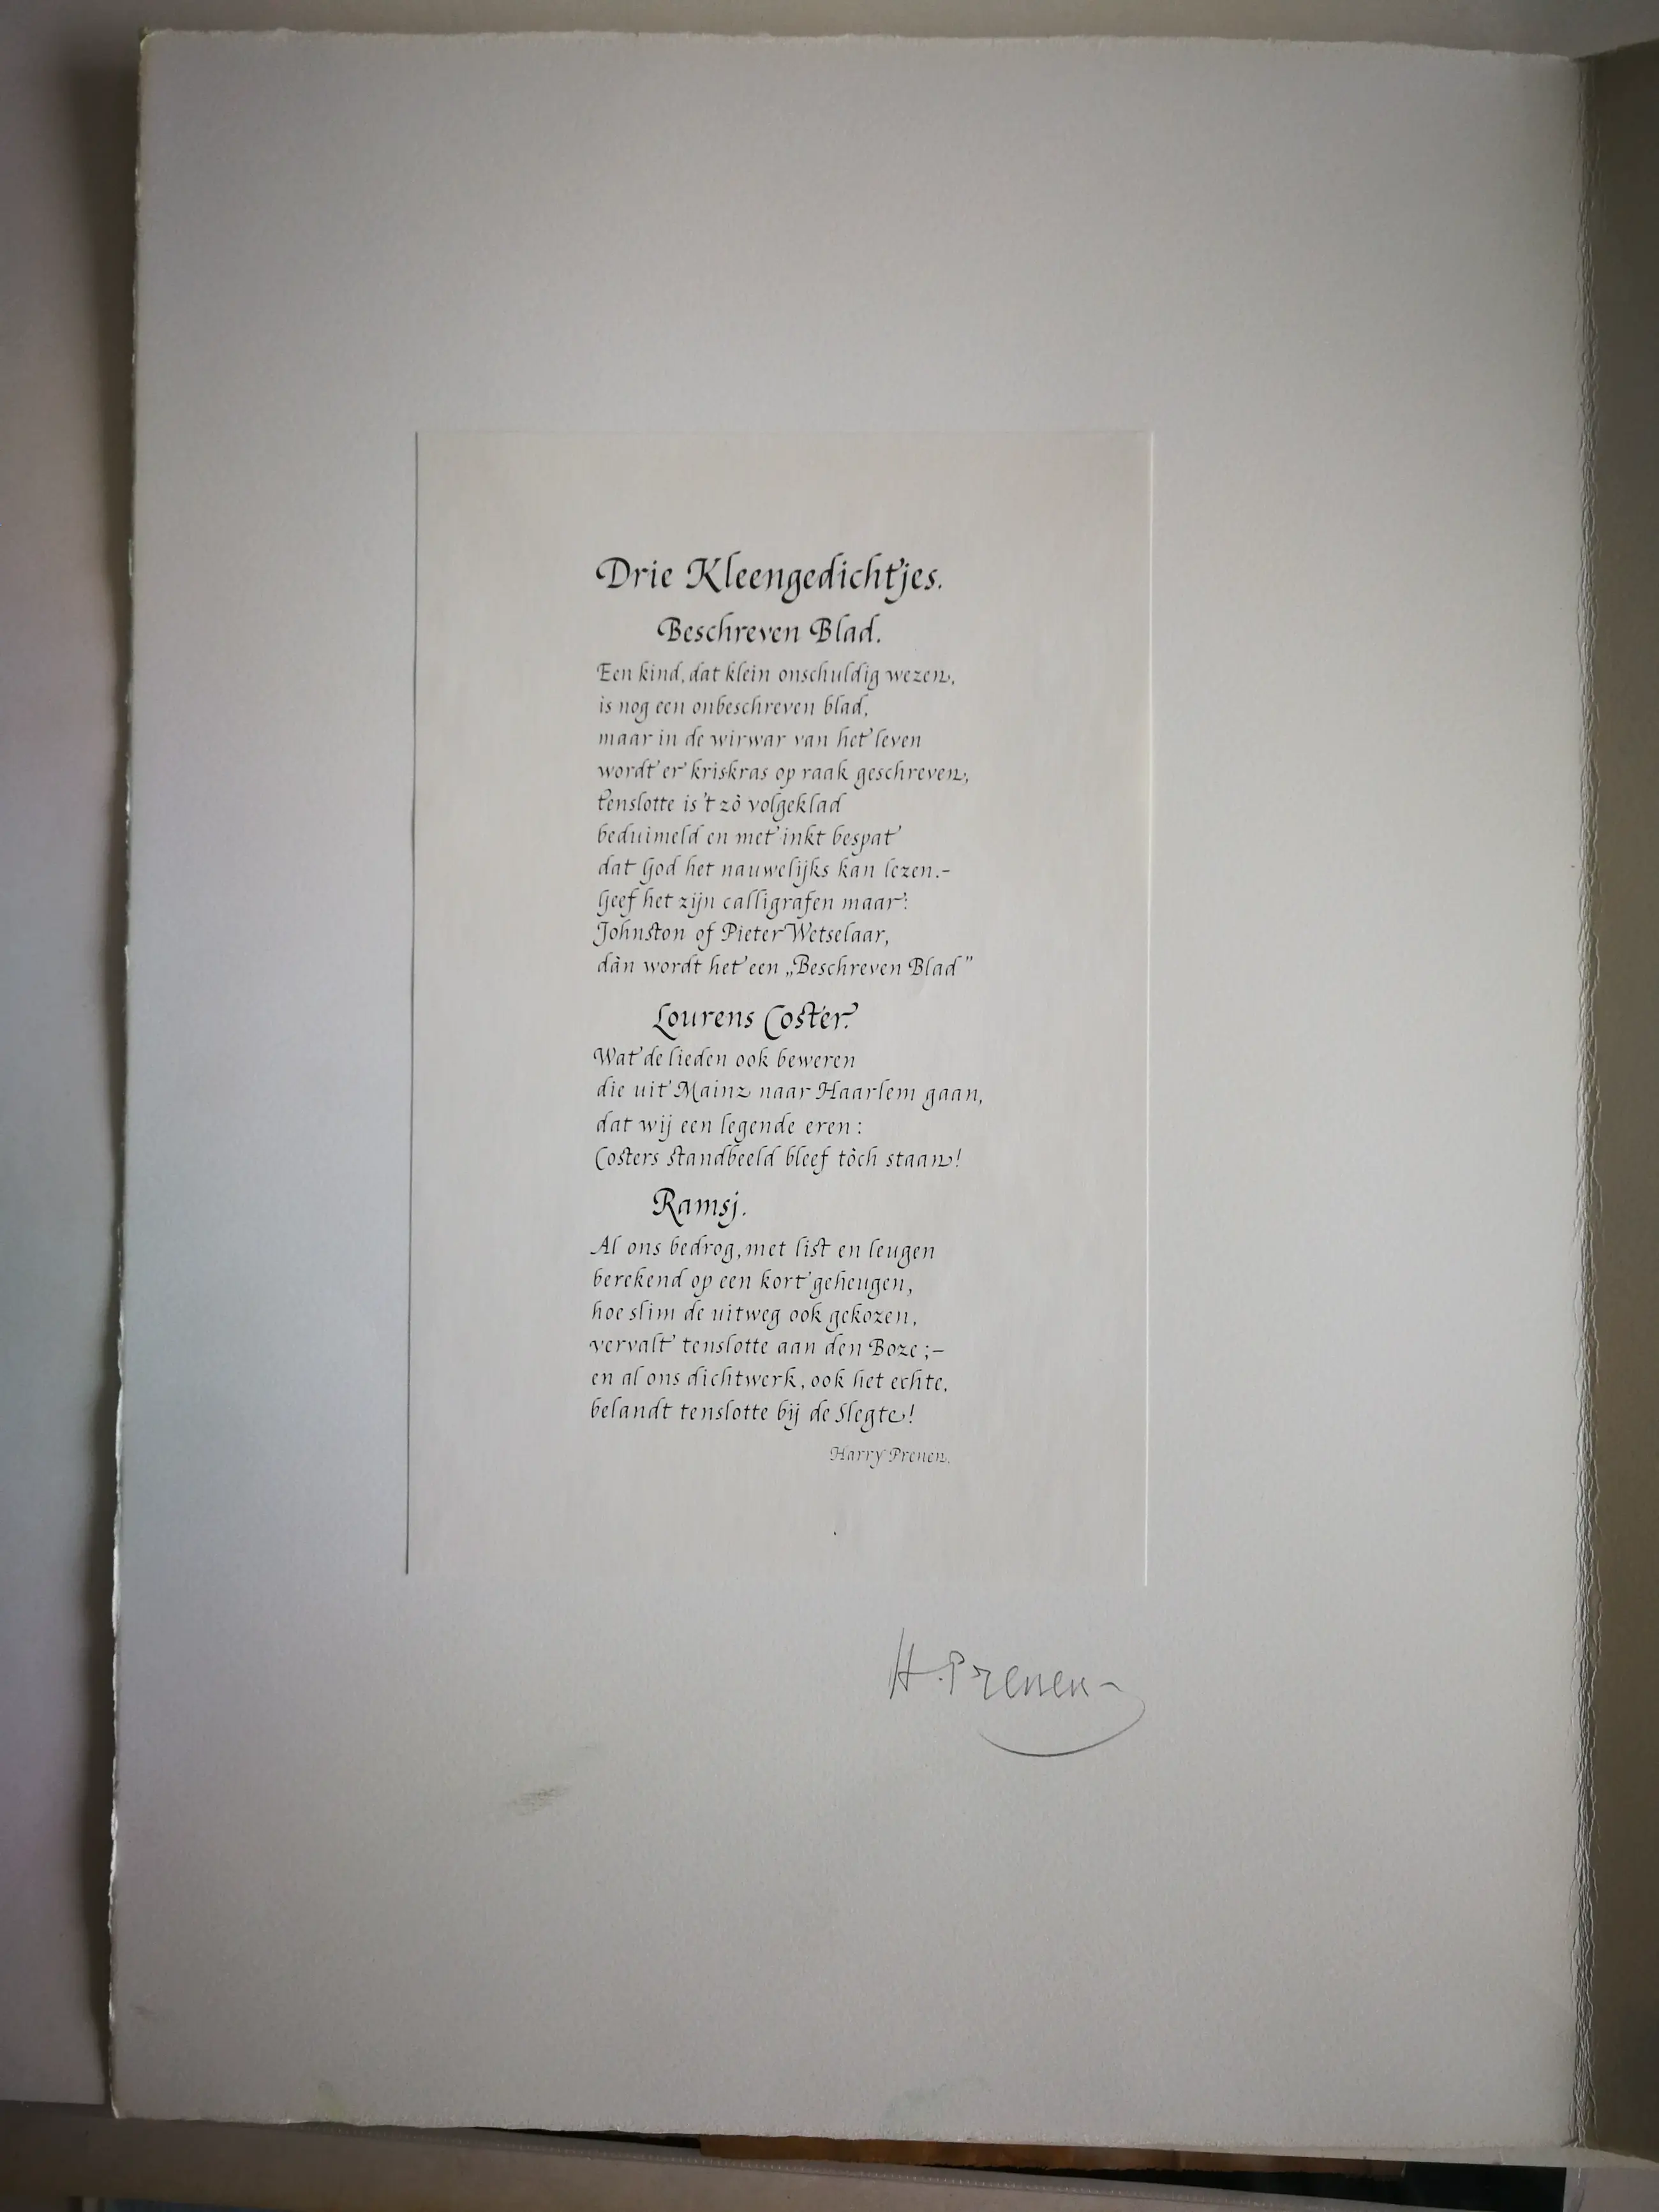 Drie Kleengedichtjes.
Beschreven Blad.
Een kind, dat klein onschuldig wezen,
is nog een onbeschreven blad,
maar in de wirwar van het leven
wordt er kriskras op raak geschreven,
tenslotte is 't zò volgeklad
beduimeld en met inkt bespat
dat God het nauwelijks kan lezen.-
Geef het zijn calligrafen maar:
Johnston of Pieter Wetselaar,
dàn wordt het een „Beschreven Blad”
Lourens Coster.
Wat de lieden ook beweren
die uit Mainz naar Haarlem gaan,
dat wij een legende eren:
Costers standbeeld bleef tòch staan!
Ramsj.
Al ons bedrog, met list en leugen
berekend op een kort geheugen,
hoe slim de uitweg ook gekozen,
vervalt tenslotte aan den Boze;-
en al ons dichtwerk, ook het echte,
belandt tenslotte bij de Slegte!
Harry Prenen.
H. Prenen